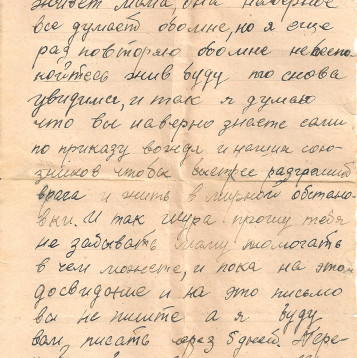 живет мама, она наверное
все думает обомне, но я еще
раз повторяю обомне небеспо-
койтесь жив буду то снова
увидимся, и так я думаю
что вы наверно знаете сами
по приказу вождя и наших сою-
зников чтобы быстрее разгромит
врага и жить в мирной обстано-
вки. И так Шура прошу тебя
не забывать маму помогать
в чем можете, и пока на этом
досвидание и на это письмо
вы не пишите а я буду
вам писать через 5 дней. Пере-